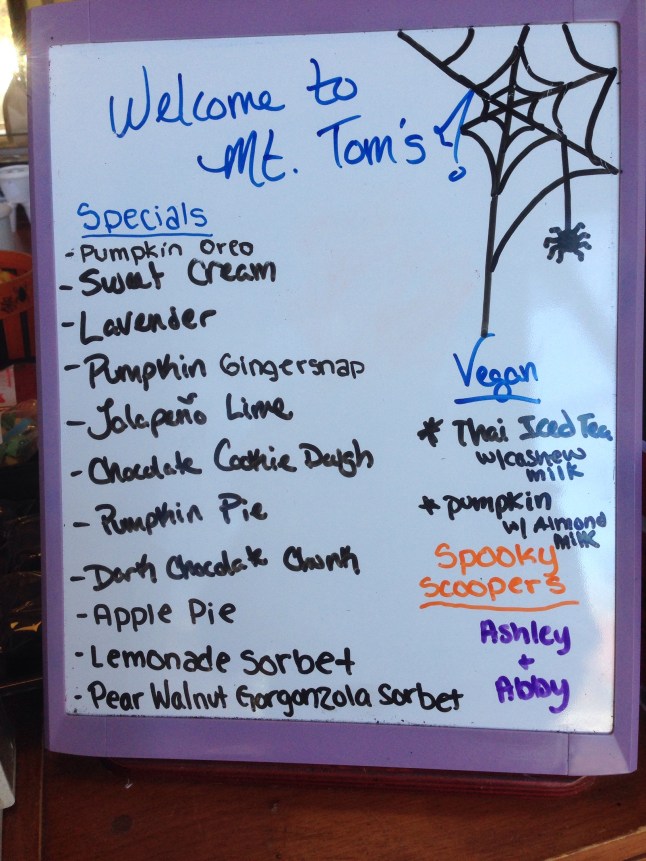 Welcome to
Mt. Tom's!
Specials
- Pumpkin Oreo
- Sweet Cream
- Lavender
- Pumpkin Gingersnap
- Jalapeño Lime
- Chocolate Cookie Dough
- Pumpkin Pie
- Dark Chocolate Chunk
- Apple Pie
- Lemonade Sorbet
- Pear Walnut Gorgonzola Sorbet
Vegan
* Thai Iced Tea
w/cashew
milk
* pumpkin
w/ Almond
milk
Spooky
Scoopers
Ashley
+
Abby